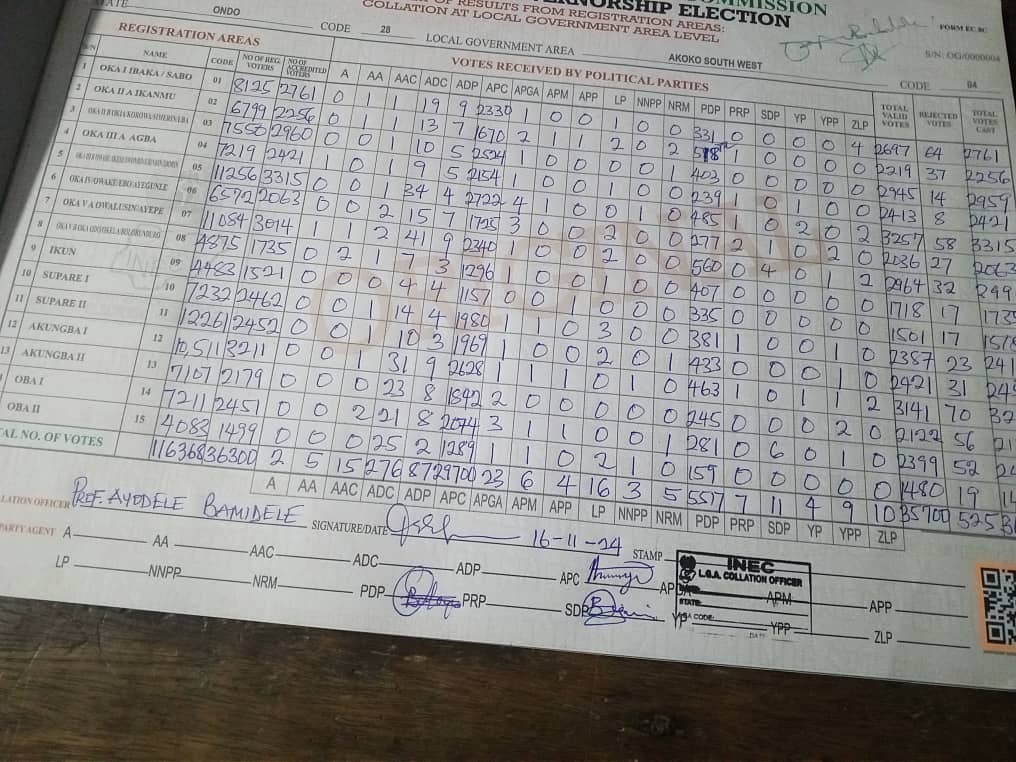 OF RESULTS FROM REGISTRATION AREAS:
COLLATION AT LOCAL GOVERNMENT AREA LEVEL
ERNORSHIP ELECTION
FORM EC 8C
S/N: OG/0000004
STATE ONDO CODE 28 LOCAL GOVERNMENT AREA AKOKO SOUTH WEST CODE 04
REGISTRATION AREAS VOTES RECEIVED BY POLITICAL PARTIES
S/N NAME CODE NO OF REG. VOTERS NO OF ACCREDITED VOTERS A AA AAC ADC ADP APC APGA APM APP LP NNPP NRM PDP PRP SDP YP YPP ZLP TOTAL VALID VOTES REJECTED VOTES TOTAL VOTES CAST
1 OKA I IBAKA / SABO 01 8125 2761 0 1 1 19 9 2330 1 0 0 1 0 0 331 0 0 0 0 4 2697 64 2761
2 OKA II A IKANMU 02 6799 2256 0 1 1 13 7 1670 2 1 1 2 0 2 518 1 0 0 0 0 2219 37 2256
3 03 7550 2960 0 0 1 10 5 2524 1 0 0 1 0 0 403 0 0 0 0 0 2945 14 2959
4 OKA III A AGBA 04 7219 2421 1 0 1 9 5 2154 1 0 0 1 0 0 239 1 0 1 0 0 2413 8 2421
5 05 11256 3315 0 0 1 34 4 2722 4 1 0 0 1 0 485 1 0 2 0 2 3257 58 3315
6 OKA IV OWAKE/EBO/AYEGUNLE 06 6572 2063 0 0 2 15 7 1725 3 0 0 2 0 0 277 2 1 0 2 0 2036 27 2063
7 OKA V A OWALUSIN/AYEPE 07 11084 3014 1 1 2 41 9 2340 1 0 0 2 0 0 560 0 4 0 1 2 2964 32 299
8 08 4875 1735 0 2 1 7 3 1296 1 0 0 1 0 0 407 0 0 0 0 0 1718 17 1735
9 IKUN 09 4483 1521 0 0 0 4 4 1157 0 0 1 0 0 0 335 0 0 0 0 0 1501 17 1518
10 SUPARE I 10 7232 2462 0 0 1 14 4 1980 1 1 0 3 0 0 381 1 0 0 1 0 2387 23 241
11 SUPARE II 11 12261 2452 0 0 1 10 3 1969 1 0 0 2 0 1 433 0 0 0 1 0 2421 31 245
12 AKUNGBA I 12 10,511 3211 0 0 1 31 9 2628 1 1 1 0 1 0 463 1 0 1 1 2 3141 70 32
13 AKUNGBA II 13 7107 2179 0 0 0 23 8 1842 2 0 0 0 0 0 245 0 0 0 2 0 2122 56 21
OBA I 14 7211 2451 0 0 2 21 8 2074 3 1 1 0 0 1 281 0 6 0 1 0 2399 52 24
OBA II 15 4083 1499 0 0 0 25 2 1289 1 1 0 2 1 0 159 0 0 0 0 0 1480 19 14
TAL NO. OF VOTES 116368 36300 2 5 15 276 87 29700 23 6 4 16 3 5 5517 7 11 4 9 10 35700 525 36
A AA AAC ADC ADP APC APGA APM APP LP NNPP NRM PDP PRP SDP YP YPP ZLP
LATION OFFICER PROF. AYODELE BAMIDELE SIGNATURE/DATE 16-11-24 STAMP
PARTY AGENT A AA AAC ADC ADP APC APGA APM APP
LP NNPP NRM PDP PRP SDP YP YPP ZLP
INEC
L.G.A. COLLATION OFFICER
STATE:
LGA CODE:
DATE
ORIGINAL